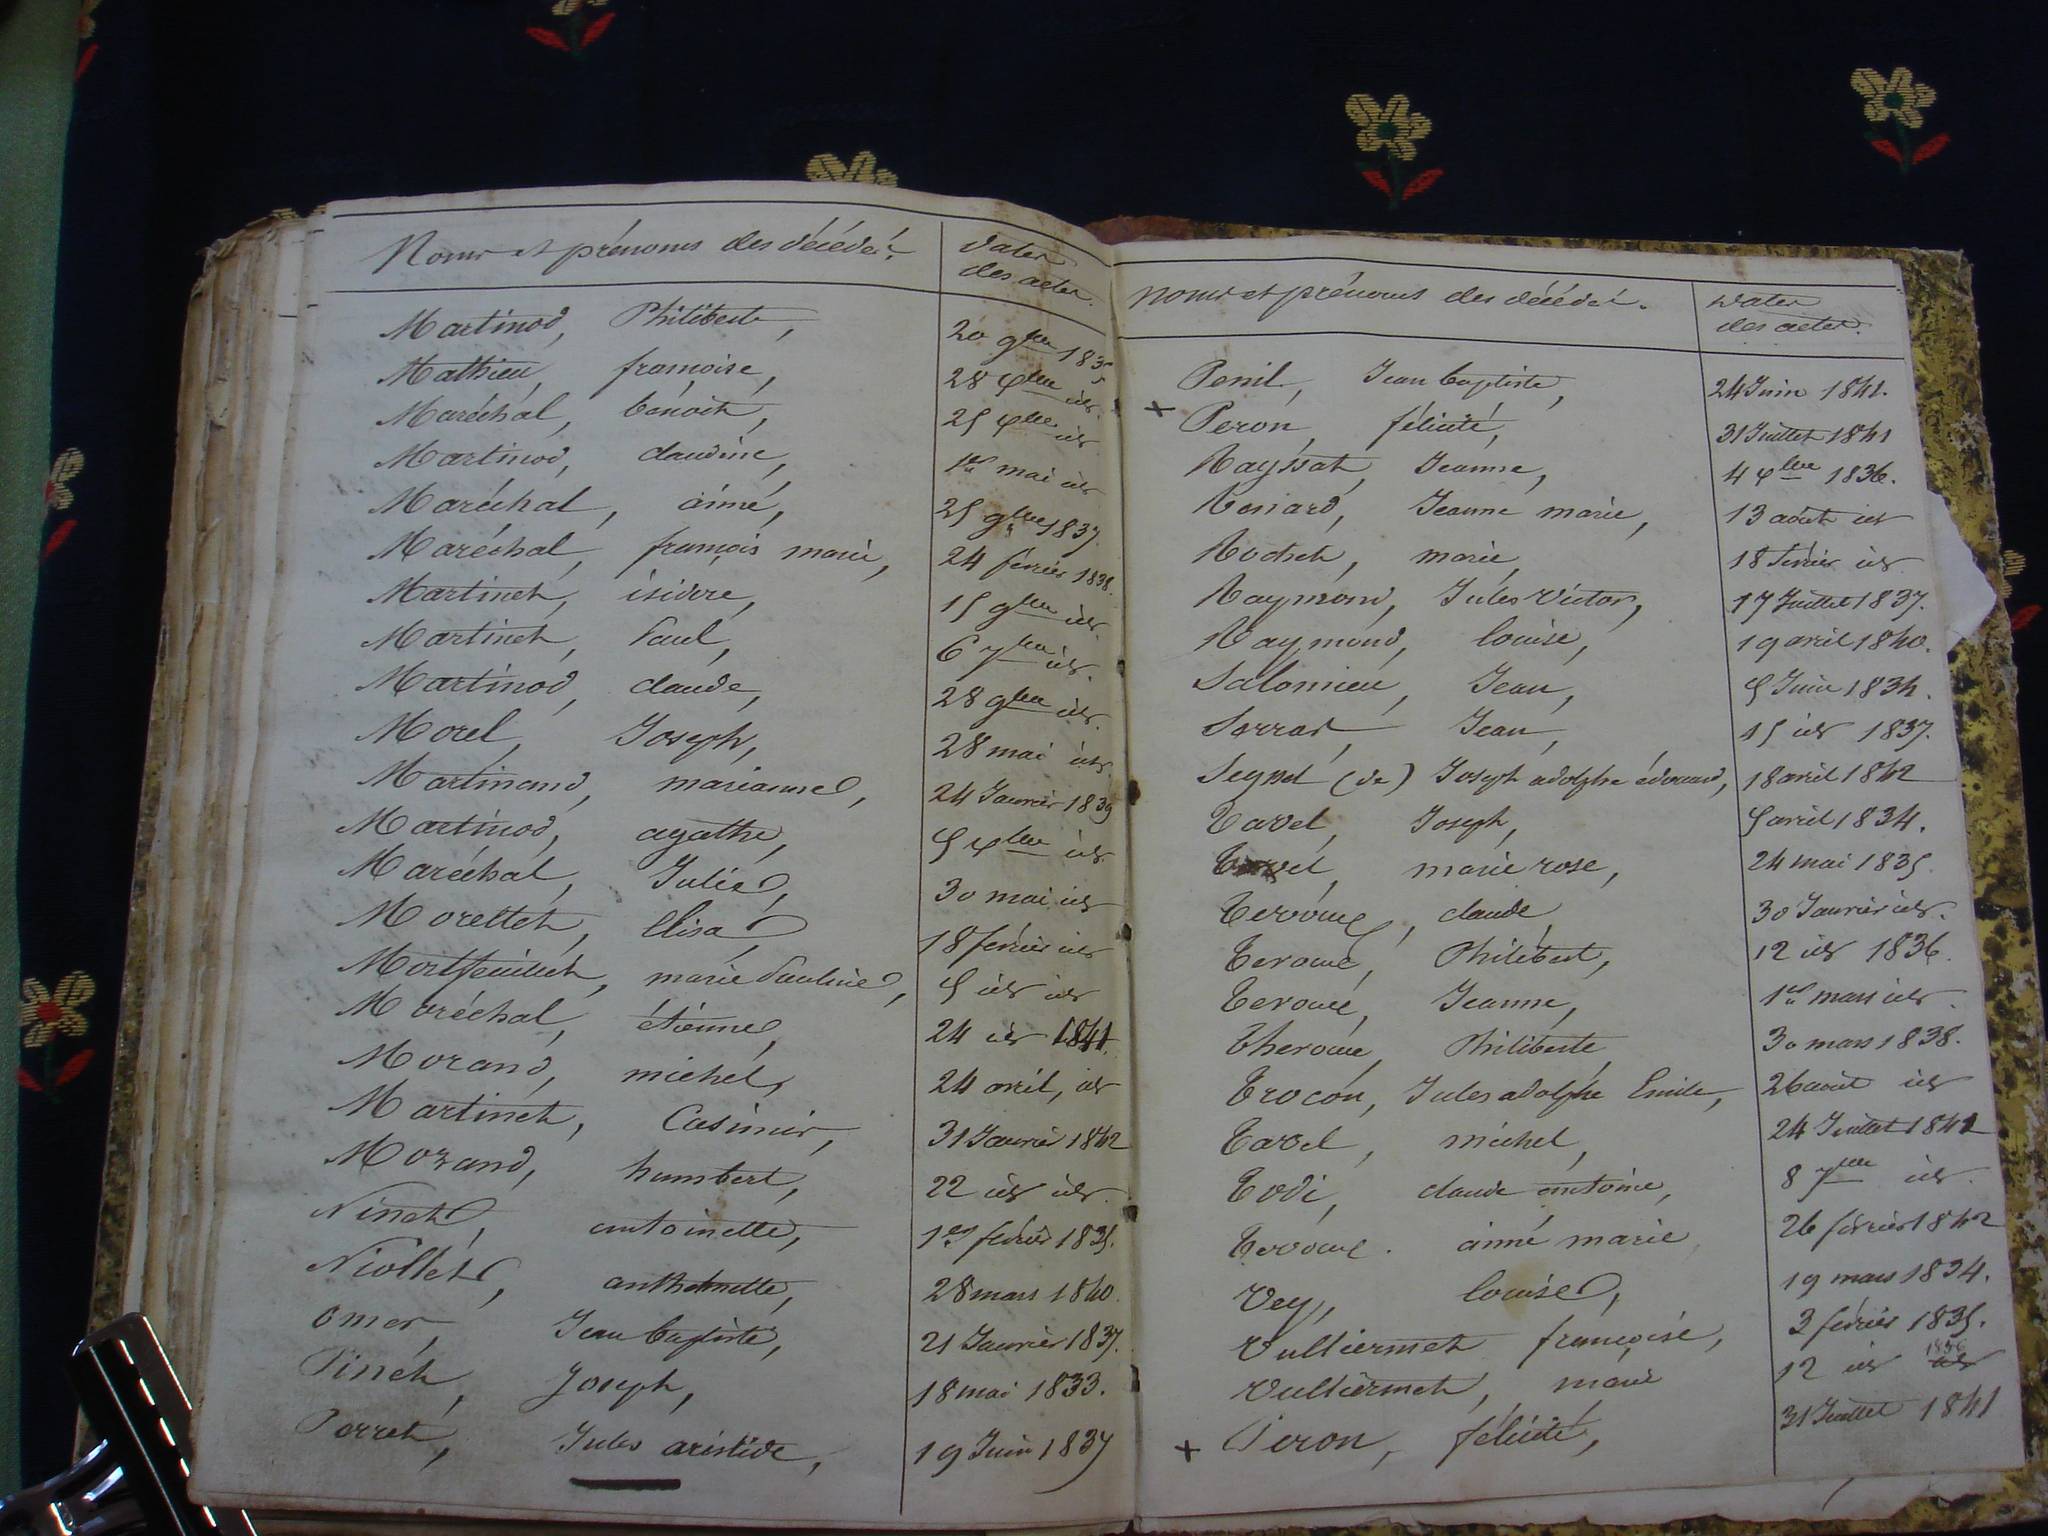 Noms et prénoms des décédés
dates
des actes.
Martinod, Philiberte, 20 9bre 1835
Mathieu, françoise, 28 Xbre id.
Maréchal, benoit, 25 Xbre id
Martinod, claudine, 1er mai id
Maréchal, aimé, 25 9bre 1837.
Maréchal, françois marie, 24 février 1838.
Martinet, isidore, 15 9bre id.
Martinet, Paul, 6 7bre id.
Martinod, claude, 28 9bre id.
Morel, Joseph, 28 mai id.
Martinand, marianne, 24 Janvier 1839
Martinod, agathe, 5 Xbre id
Maréchal, Julie, 30 mai id
Morellet, Elisa, 18 février id
marie Pauline, 5 id id
Maréchal, étienne, 24 id 1841.
Morand, michel, 24 avril, id
Martinet, Casimir, 31 Janvier 1842
Morand, humbert, 22 id id.
Ninet, antoinette, 1er février 1835.
Niollet, anthelmette, 28 mars 1840.
omer, Jean baptiste, 21 Janvier 1837.
Pinet, Joseph, 18 mai 1833.
Perret, Jules aristide, 19 Juin 1837
noms et prénoms des décédés.
dates
des actes.
Penil, Jean baptiste, 24 Juin 1841.
x Peron, félicité, 31 Juillet 1841
Rayssat, Jeanne, 4 Xbre 1836.
Renard, Jeanne marie, 13 août id
Rochet, marie, 18 février id
Raymond, Jules Victor, 17 Juillet 1837.
Raymond, louise, 19 avril 1840.
Salomieu, Jean, 5 Juin 1834.
Serrat, Jean, 15 id 1837.
Seyssel (de) Joseph adolphe édouard, 18 avril 1842
Tavel, Joseph, 5 avril 1834.
Tavel, marie rose, 24 mai 1835.
Teroúe, claude 30 Janvier id.
Teroue, Philibert, 12 id 1836.
Teroue, Jeanne, 1er mars id.
Theroue, Philiberte, 30 mars 1838.
Trocon, Jules adolphe Emile, 26 août id
Tavel, michel, 24 Juillet 1841
Todi, claude antoine, 8 7bre id.
Teroue. aimé marie 26 février 1842
Vey, louise, 19 mars 1834.
Vulliermet françoise, 3 février 1835.
Vulliermet, marie 12 id 1836
x Peron, félicité, 31 Juillet 1841